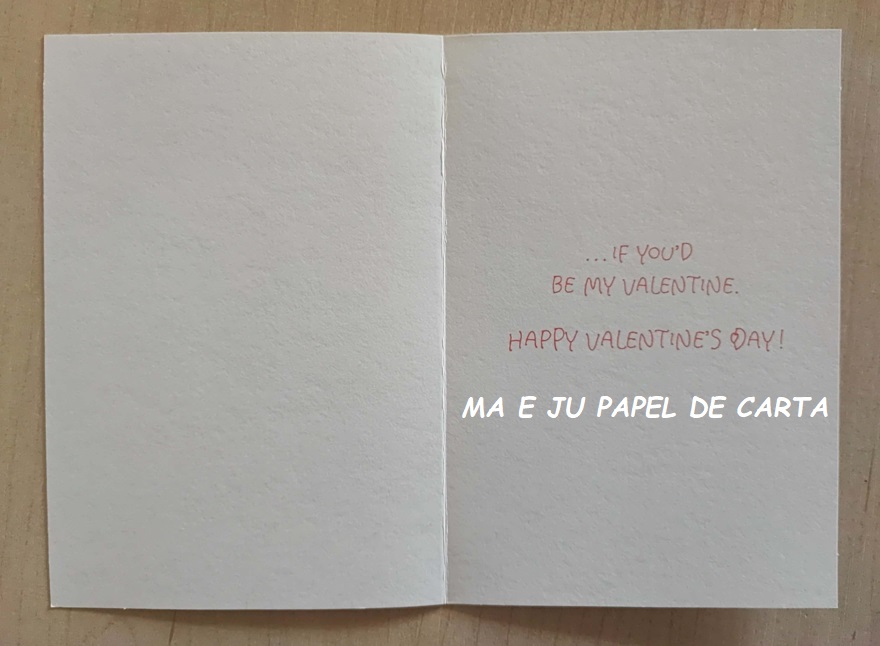 ...IF YOU'D
BE MY VALENTINE.
HAPPY VALENTINE'S DAY!
MA E JU PAPEL DE CARTA